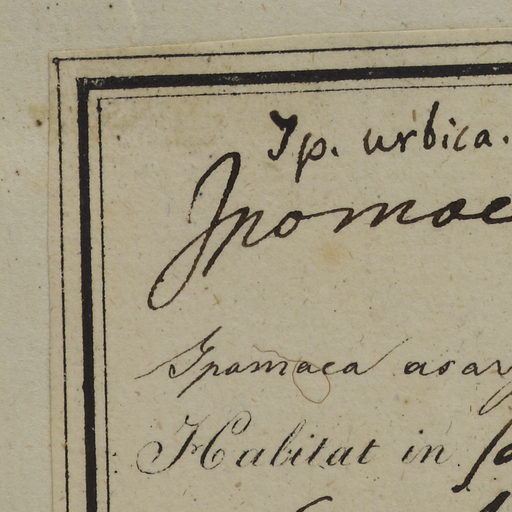 Ip. urbica.
Ipomoe
Ipamaea asar
Habitat in